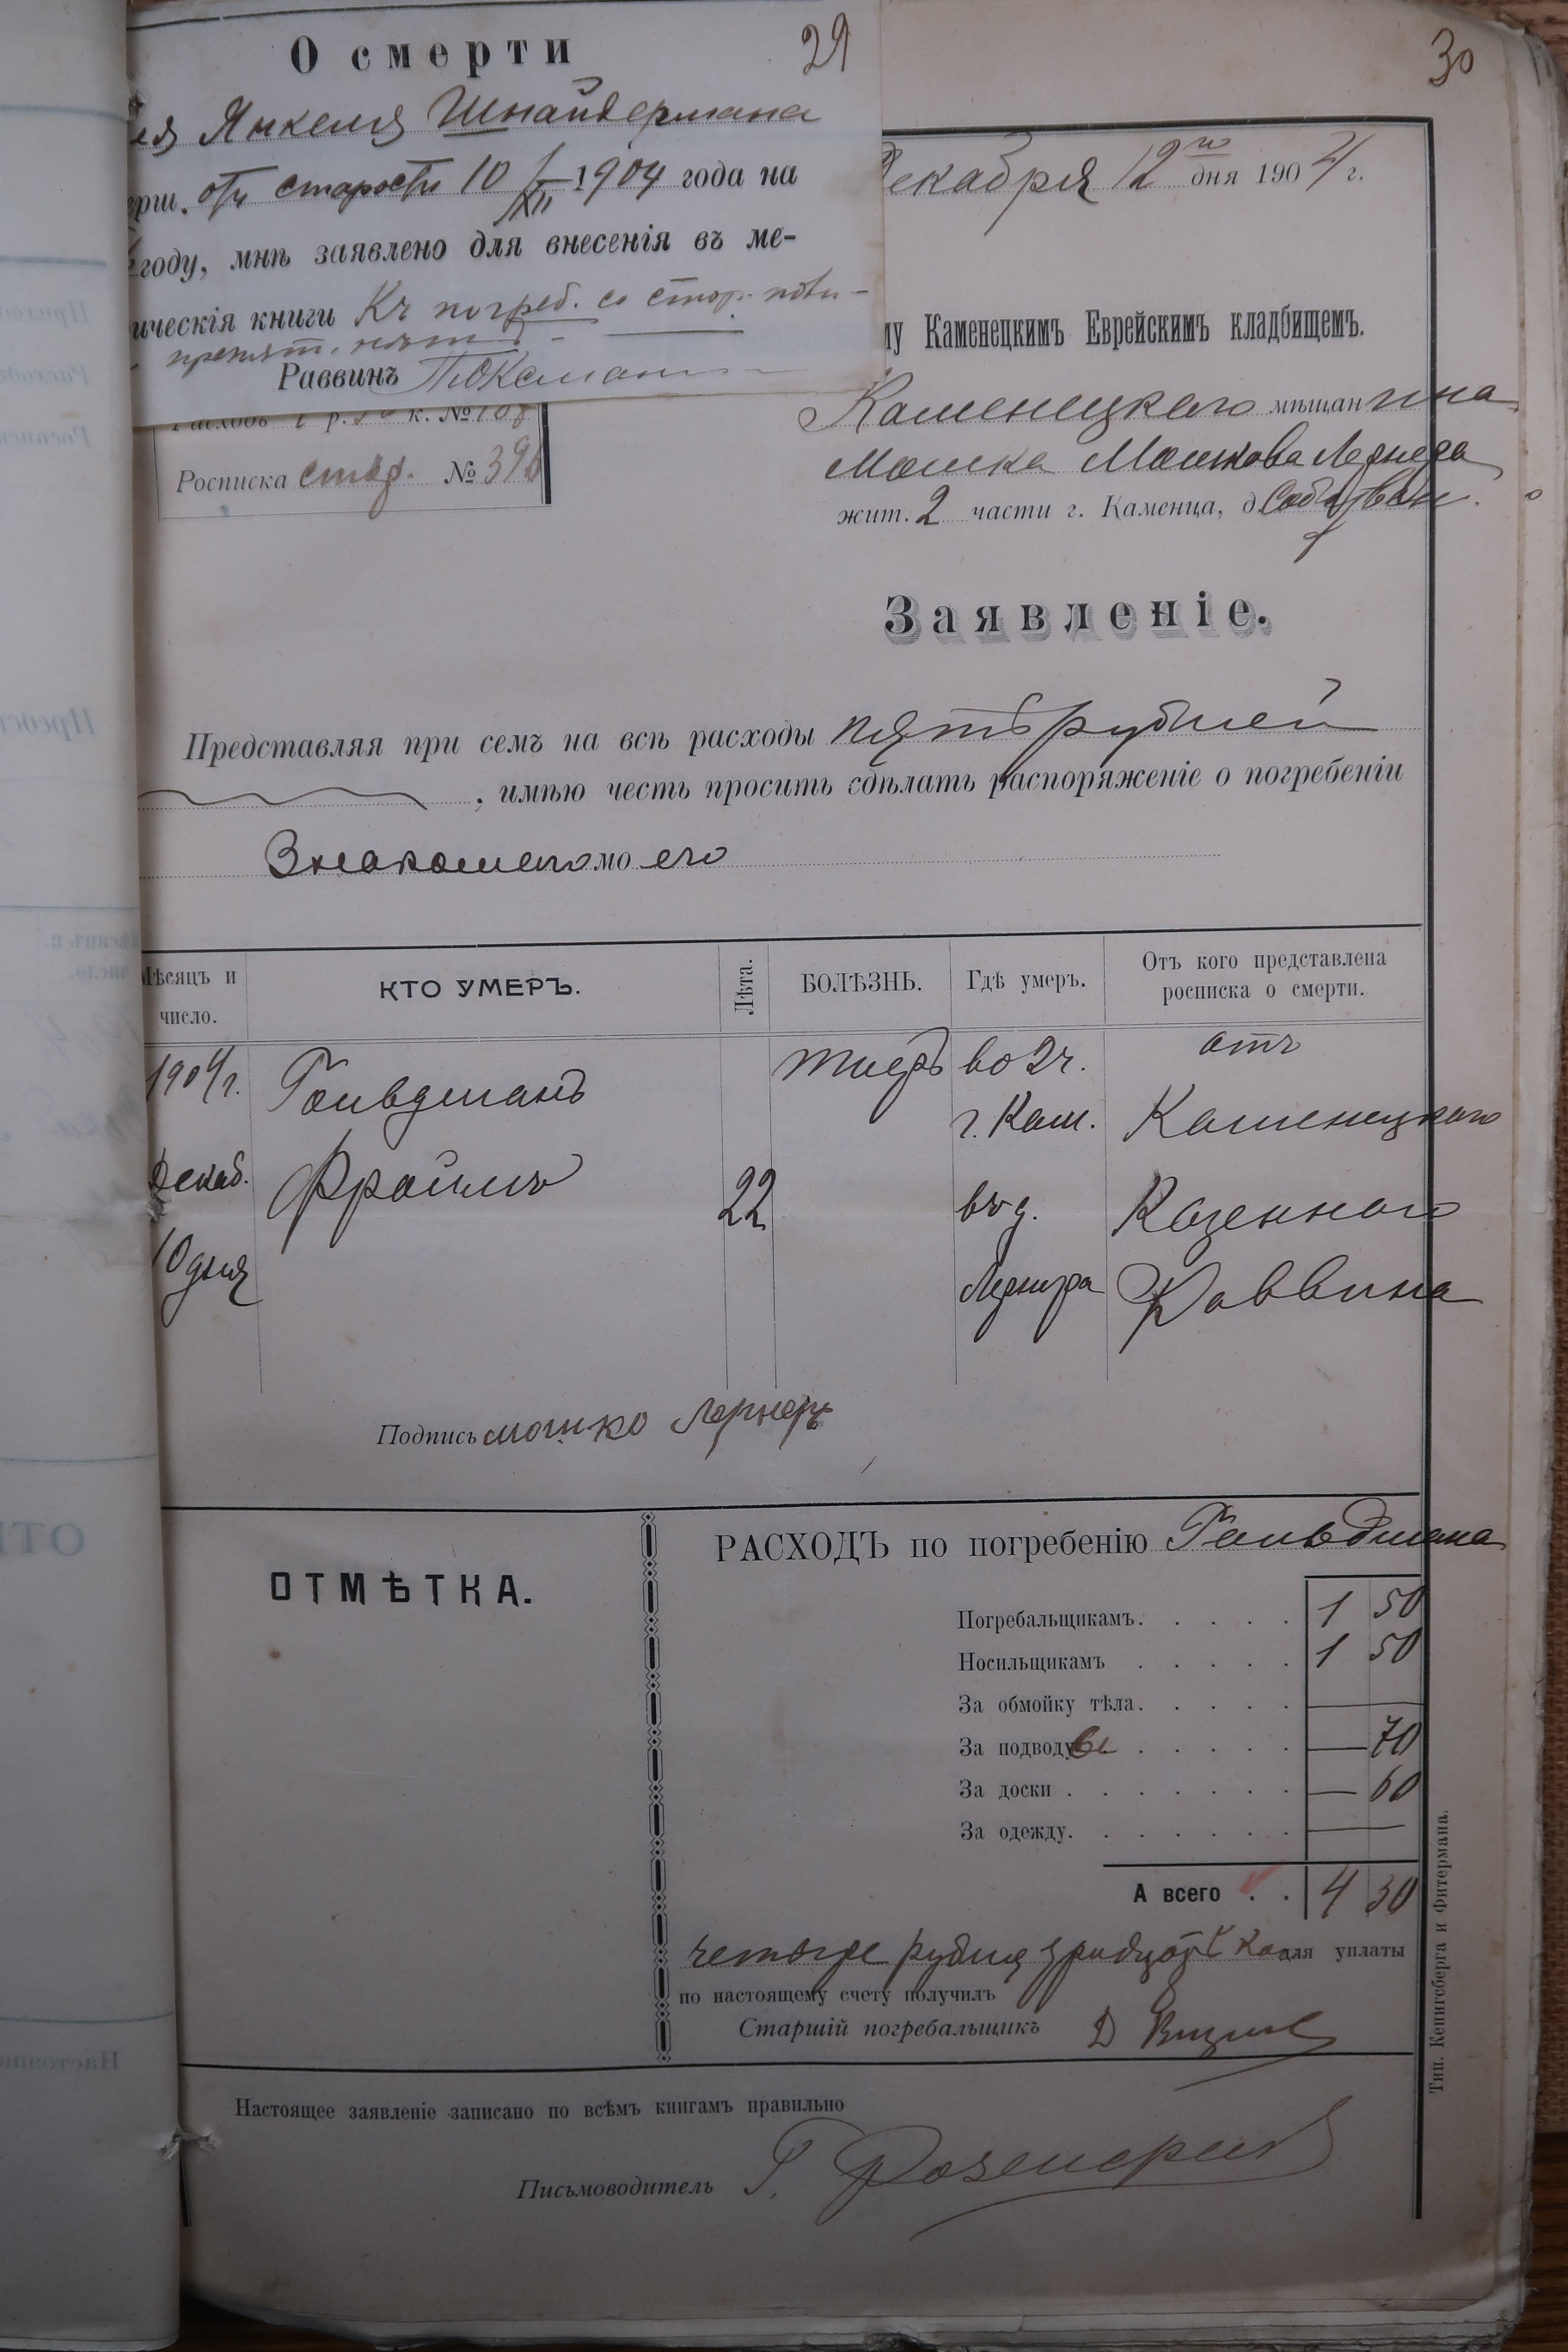 О смерти
29
Янкеля Шнайдермана
отъ старости 10/XII 1904 года на
году, мнѣ заявлено для внесенія въ ме-
ическія книги Къ погреб. со стор.
препят. нѣтъ
Раввинъ
30
Декабря 12го дня 1904 г.
му Каменецкимъ Еврейскимъ кладбищемъ.
Каменецкаго мѣщанина
Мошка Мошкова Лернера
жит. 2 части г. Каменца, д. Собствен.
Росписка № 39
Заявленіе.
Представляя при семъ на всѣ расходы пять рублей
, имѣю честь просить сдѣлать распоряженіе о погребеніи
Знакомаго моего
Мѣсяцъ и число.
КТО УМЕРЪ.
Лѣта.
БОЛѢЗНЬ.
Гдѣ умеръ.
Отъ кого представлена росписка о смерти.
1904 г. Декаб. 10 дня
Гольдманъ Фроимъ
22
тифъ
во 2 ч. г. Кам. въ д. Лернера
отъ Каменецкаго Казеннаго Раввина
Подпись мошко Лернеръ
ОТМѢТКА.
РАСХОДЪ по погребенію Гольдмана
Погребальщикамъ. 1 50
Носильщикамъ 1 50
За обмойку тѣла. —
За подводы — 70
За доски — 60
За одежду. —
А всего 4 30
четыре рубля тридцать коп для уплаты
по настоящему счету получилъ
Старшій погребальщикъ Д
Настоящее заявленіе записано по всѣмъ книгамъ правильно
Письмоводитель Г.
Тип. Кенигсберга и Фитермана.